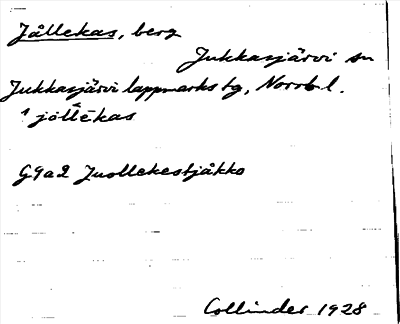 Jållekas, berg
Jukkasjärvi sn
Jukkasjärvi lappmarks tg, Norrb. l.
jöllēkas
G9a2 Juollekestjåkko
Collinder 1928